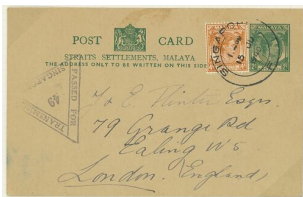 POST CARD
STRAITS SETTLEMENTS, MALAYA
THE ADDRESS ONLY TO BE WRITTEN ON THIS SIDE
SINGAPORE
PASSED FOR
49
J & E Esqrs.
79 Grange Rd
Ealing W5
London, England